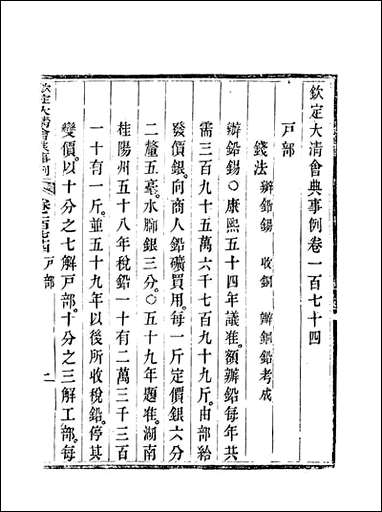 欽定大清會典事例卷一百七十四
戸部
錢法 辦鉛錫 收銅 辦銅鉛考成
辦鉛錫○康熙五十四年議准。額辦鉛每年共
需三百九十五萬六千七百九十九斤。由部給
發價銀。向商人鉛礦買用。每一斤定價銀六分
二釐五豪。水腳銀三分。○五十九年題准。湖南
桂陽州五十八年稅鉛一十有二萬三千三百
一十有一斤。並五十九年以後所收稅鉛。停其
變價。以十分之七解戸部。十分之三解工部。每
欽定大清會典事例 卷一百七十四 戸部 一